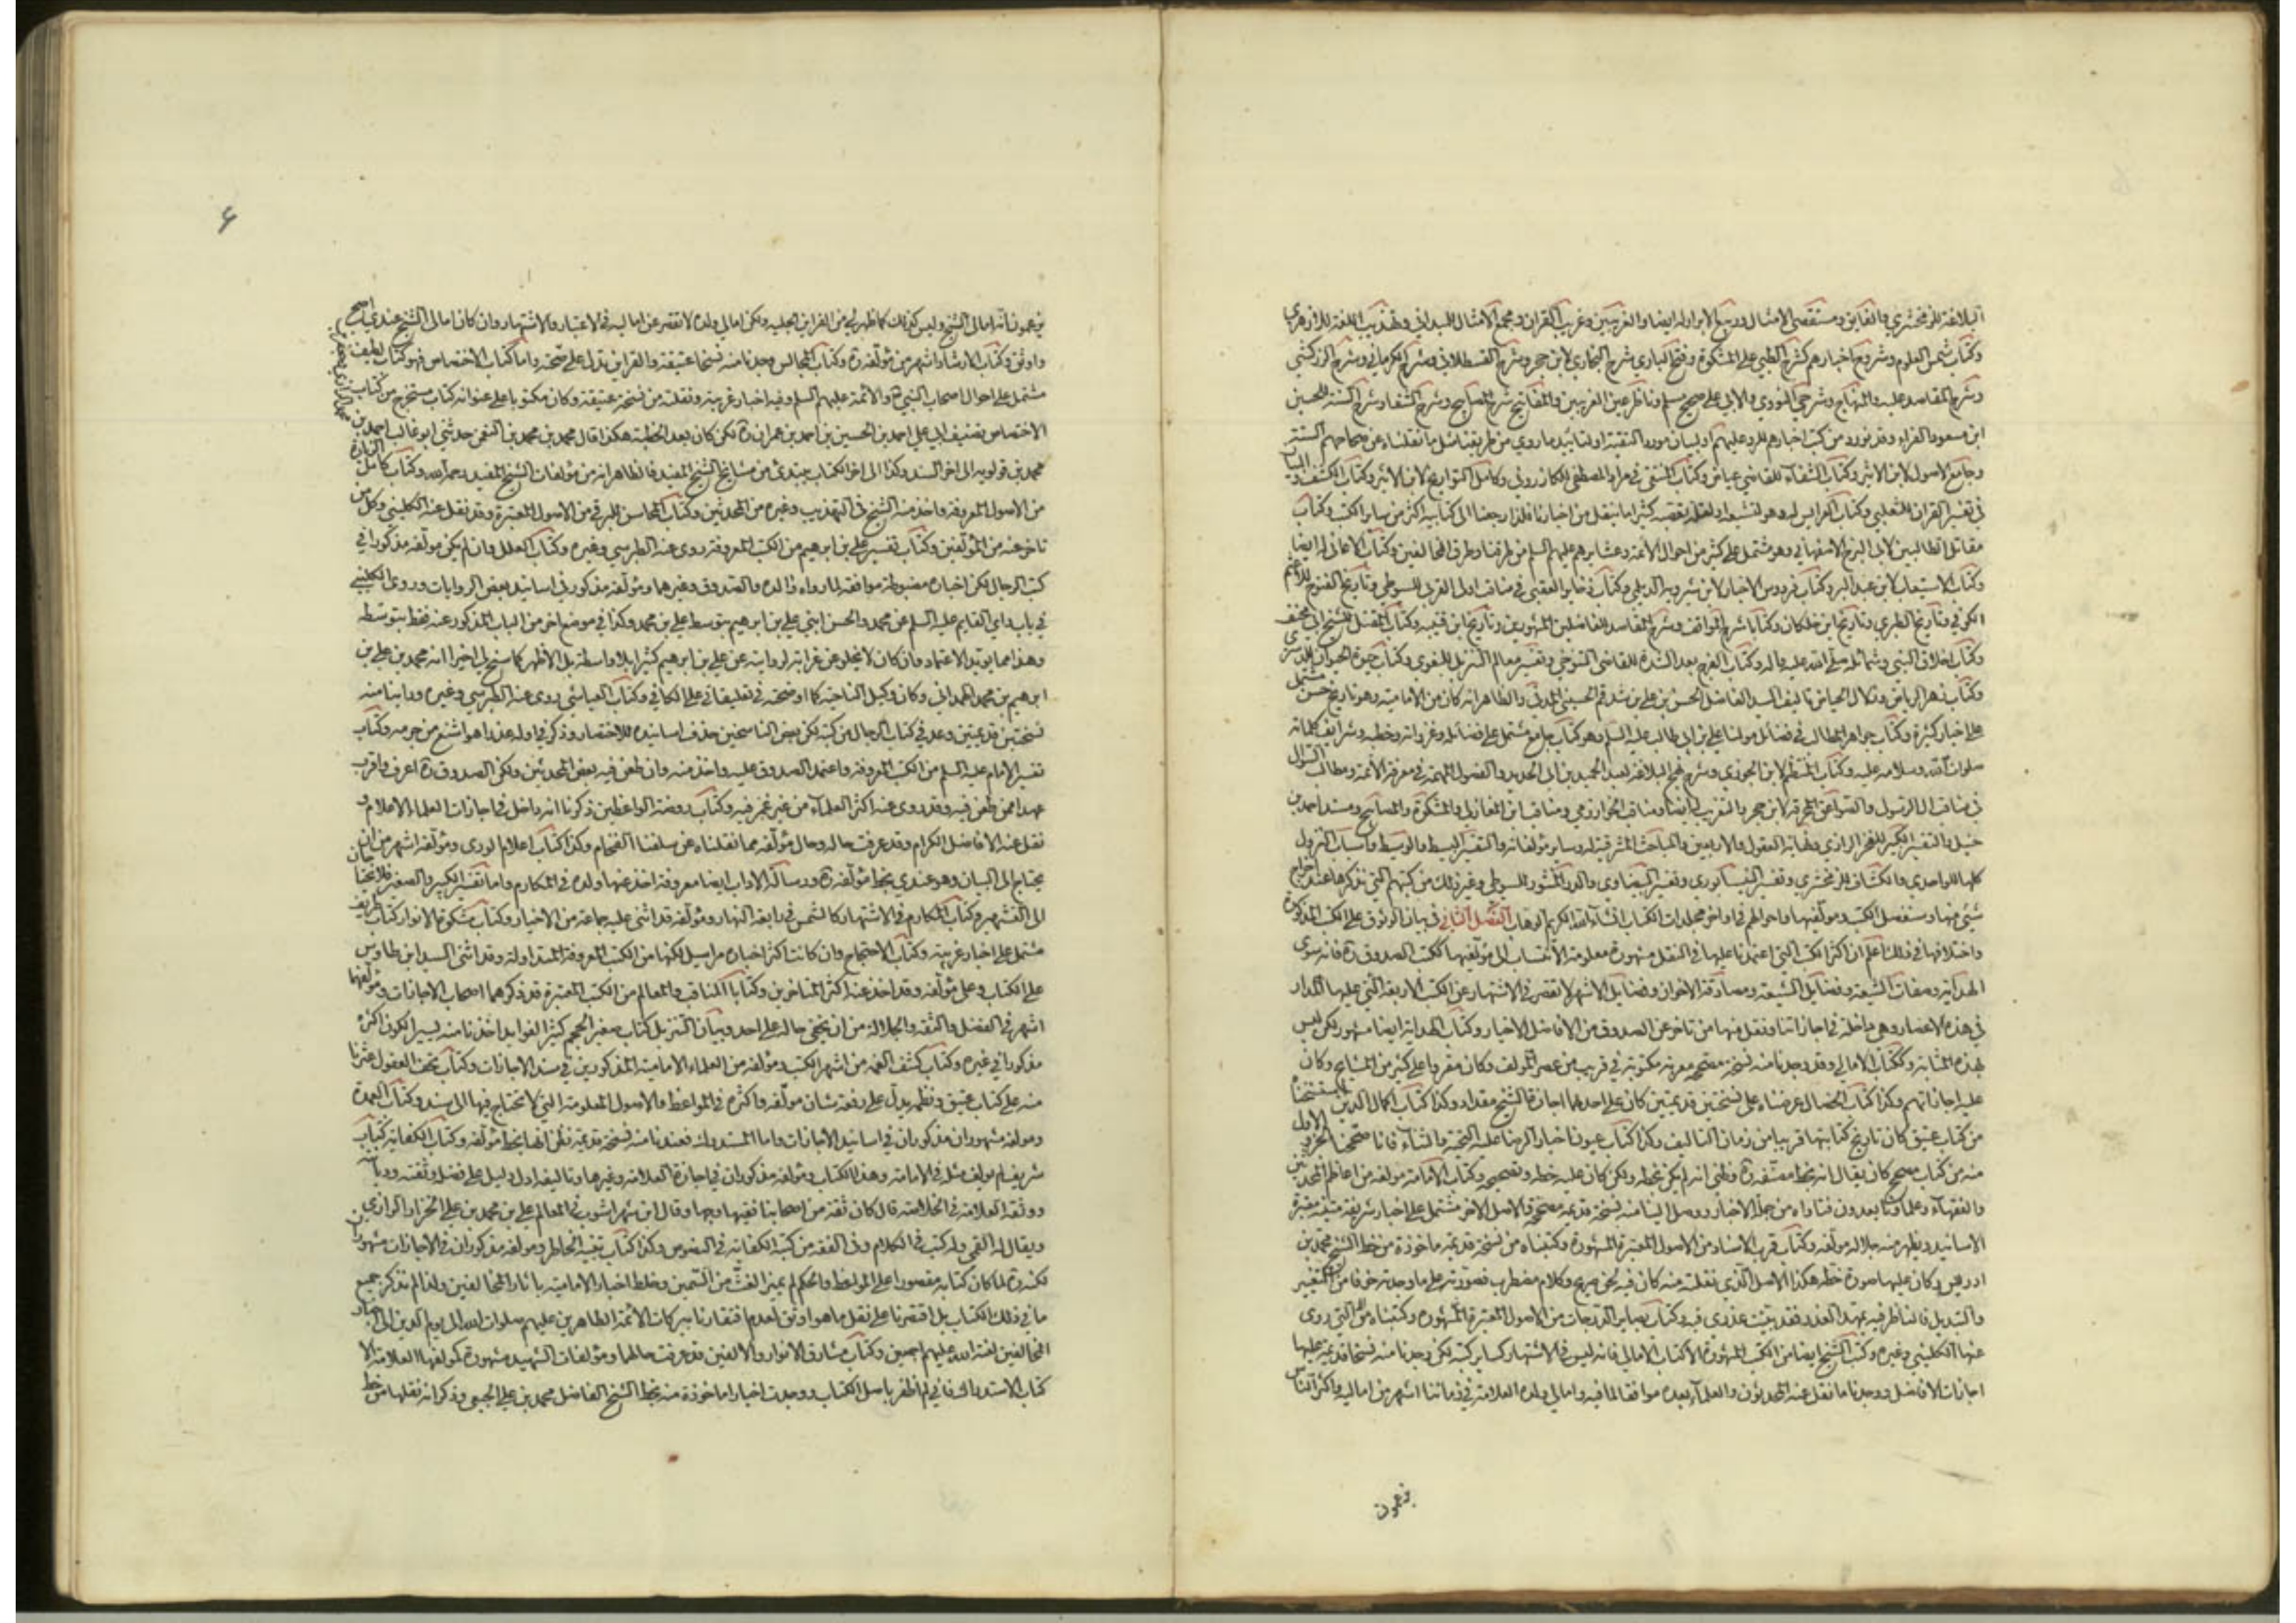 البلاغة للزمخشري والفايق ومستقصى الامثال وربيع الابرار له ايضا والغريبين وغريب القران ومجمع الامثال للميداني وتهذيب اللغة للازهري
وكتاب شمس العلوم وشروح اخبارهم كشرح الطيبي على المشكوة وفتح الباري شرح البخاري لابن حجر وشرح القسطلاني وشرح الكرماني وشرح الزركشي
وشرح المقاصد عليه والمنهاج وشرحي النووي والابي على صحيح مسلم وناظر عين الغريبين والمفاتيح شرح المصابيح وشرح الشفا وشرح السنة للحسين
ابن مسعود الفراء وقد نورد من كتب اخبارهم للرد عليهم او لبيان مورد التقية او لتاييد ما روي من طريقنا مثل ما نقلناه عن صحاحهم الستة
وجامع الاصول لابن الاثير وكتاب الشفاء للقاضي عياض وكتاب المنتقى في مولد المصطفى للكازروني وكامل التواريخ لابن الاثير وكتاب الكشف والبيان
في تفسير القران للثعلبي وكتاب العرايس له وهو لتشيعه او لقلة تعصبه كثيرا ما ينقل من اخبارنا فلذا رجعنا الى كتابيه اكثر من ساير الكتب وكتاب
مقاتل الطالبيين لابي الفرج الاصفهاني وهو مشتمل على كثير من احوال الائمة وعشايرهم عليهم السلم من طرقنا وطرق المخالفين وكتاب الاغاني له ايضا
وكتاب الاستيعاب لابن عبد البر وكتاب فردوس الاخبار لابن شيرويه الديلمي وكتاب ذخاير العقبى في مناقب اولي القربى للسيوطي وتاريخ الفتوح للاعثم
الكوفي وتاريخ الطبري وتاريخ ابن خلكان وكتابا شرح المواقف وشرح المقاصد للفاضلين المشهورين وتاريخ ابن قتيبة وكتاب المقتل للشيخ ابي مخنف
وكتاب اخلاق النبي وشمائله صلى الله عليه واله وكتاب الفرج بعد الشدة للقاضي التنوخي وتفسير معالم التنزيل للبغوي وكتاب حيوة الحيوان للدميري
وكتاب زهر الرياض وزلال الحياض تاليف السيد الفاضل الحسن بن علي بن شدقم الحسيني المدني والظاهر انه كان من الامامية وهو تاريخ حسن مشتمل
على اخبار كثيرة وكتاب جواهر المطالب في فضائل مولنا علي بن ابي طالب عليه السلم وهو كتاب جامع مشتمل على فضائله وغزواته وخطبه وشرايف كلماته
صلوات الله وسلامه عليه وكتاب المنتظم لابن الجوزي وشرح نهج البلاغة لعبد الحميد بن ابي الحديد والفصول المهمة في معرفة الائمة ومطالب السؤل
في مناقب ال الرسول والصواعق المحرقة لابن حجر والتقريب له ايضا ومناقب الخوارزمي ومناقب ابن المغازلي والمشكوة والمصابيح ومسند احمد بن
حنبل والتفسير الكبير للفخر الرازي ونهاية العقول والاربعين والمباحث المشرقية له وساير مؤلفاته والتفسير البسيط والوسيط واسباب النزول
كلها للواحدي والكشاف للزمخشري وتفسير النيسابوري وتفسير البيضاوي والدر المنثور للسيوطي وغير ذلك من كتبهم التي نذكرها عند اخراج
شيء منها وسنفصل الكتب ومؤلفيها واحوالهم في اواخر مجلدات الكتاب انشاء الله الكريم الوهاب الفصل الثاني في بيان الوثوق على الكتب المذكورة
واختلافها في ذلك اعلم ان اكثر الكتب التي اعتمدنا عليها في النقل مشهورة معلومة الانتساب الى مؤلفيها ككتب الصدوق ره فانه سوى
الهداية وصفات الشيعة وفضايل الشيعة ومصادقة الاخوان وفضايل الاشهر لا تقصر في الاشتهار عن الكتب الاربعة التي عليها المدار
في هذه الاعصار وهي داخلة في اجازاتنا ونقل منها من تاخر عن الصدوق من الافاضل الاخيار وكتاب الهداية ايضا مشهور لكن ليس
بهذه المثابة وككتاب الامالي وقد وجدنا منه نسخة مصححة معربة مكتوبة في قريب من عصر المولف وكان مقروا على كثير من المشايخ وكان
عليه اجازاتهم وكذا كتاب الخصال عرضناه على نسختين قديمتين كان على احدهما اجازة الشيخ مقداد وكذا كتاب اكمال الدين استنسخناه
من كتاب عتيق كان تاريخ كتابتها قريبا من زمان التاليف وكذا كتاب عيون اخبار الرضا عليه التحية والثناء فانا صححنا الجزو الاول
منه من كتاب مصحح كان يقال انه بخط مصنفه ره وظني انه لم يكن بخطه ولكن كان عليه خطه وتصحيحه وكتاب الامامة مولفه من اعاظم المحدثين
والفقهاء وعلماؤنا يعدون فتاواه من جملة الاخبار ووصل الينا منه نسخة قديمة مصححة والاصل الاخر مشتمل على اخبار شريفة متينة معتبرة
الاسانيد ويظهر منه جلالة مؤلفه وكتاب قرب الاسناد من الاصول المعتبرة المشهورة وكتبناه من نسخة قديمة ماخوذة من خط الشيخ محمد بن
ادريس وكان عليها صورة خطه هكذا الاصل الذي نقلته منه كان فيه لحن صريح وكلام مضطرب فصورته على ما وجدته خوفا من التغيير
والتبديل فالناظر فيه يمهد العذر فقد بينت عذري فيه وكتاب بصاير الدرجات من الاصول المعتبرة المشهورة وكتبناه من التي روى
عنها الكليني وغيره وكتب الشيخ ايضا من الكتب المشهورة الا كتاب الامالي فانه ليس في الاشتهار كساير كتبه لكن وجدنا منه نسخا قديمة عليها
اجازات الافاضل ووجدنا ما نقل عنه المحدثون والعلماء بعده موافقا لما فيه وامالي ولده العلامة في زماننا اشهر من اماليه واكثر الناس
يزعمون
6
يزعمون انه امالي الشيخ وليس كذلك كما ظهر لي من القراين الجلية ولكن امالي ولده لا تقصر عن اماليه في الاعتبار والاشتهار وان كان امالي الشيخ عندي اصح
واوثق وكتاب الارشاد اشهر من مؤلفه ره وكتاب المجالس وجدنا منه نسخا عتيقة والقراين تدل على صحته واما كتاب الاختصاص فهو كتاب لطيف
مشتمل على احوال اصحاب النبي ص والائمة عليهم السلم وفيه اخبار غريبة ونقلته من نسخة عتيقة وكان مكتوبا على عنوانه كتاب مستخرج من كتاب
الاختصاص تصنيف ابي علي احمد بن الحسين بن احمد بن عمران ره لكن كان بعد الخطبة هكذا قال محمد بن محمد بن النعمن حدثني ابو غالب احمد بن
محمد بن قولويه الى اخر السند وكذا الى اخر الكتاب يبتدئ من مشايخ الشيخ المفيد فالظاهر انه من مؤلفات الشيخ المفيد رحمه الله وكتاب كامل الزيارة
من الاصول المعروفة واخذ منه الشيخ في التهذيب وغيره من المحدثين وكتاب المحاسن للبرقي من الاصول المعتبرة وقد نقل عنه الكليني وكل من
تاخر عنه من المؤلفين وكتاب تفسير علي بن ابرهيم من الكتب المعروفة وروى عنه الطبرسي وغيره وكتاب العلل وان لم يكن مؤلفه مذكورا في
كتب الرجال لكن اخباره مضبوطة موافقة لما رواه والده والصدوق وغيرهما ومؤلفه مذكور في اسانيد بعض الروايات وروى الكليني
في باب من راى القايم عليه السلم عن محمد والحسن ابني علي بن ابرهيم بتوسط علي بن محمد وكذا في موضع اخر من الباب المذكور عنه فقط بتوسطه
وهذا مما يؤيد الاعتماد وان كان لا يخلو عن غرابة لروايته عن علي بن ابرهيم كثيرا بلا واسطة بل الاظهر كما سنح لي اخيرا انه محمد بن علي بن
ابرهيم بن محمد الهمداني وكان وكيل الناحية كما اوضحته في تعليقاتي على الكافي وكتاب العياشي روى عنه الطبرسي وغيره وراينا منه
نسختين قديمتين وعد في كتاب الرجال من كتبه لكن بعض الناسخين حذف اسانيده للاختصار وذكر في اوله عذرا هو اشنع من جرمه وكتاب
تفسير الامام عليه السلم من الكتب المعروفة واعتمد الصدوق عليه واخذ منه وان طعن فيه بعض المحدثين ولكن الصدوق ره اعرف واقرب
عهدا ممن طعن فيه وقد روى عنه اكثر العلماء من غير غمز فيه وكتاب روضة الواعظين ذكرنا انه داخل في اجازات العلماء الاعلام و
نقل عنه الافاضل الكرام وقد عرفت حاله وحال مؤلفه مما نقلناه عن سلفنا الفخام وكذا كتاب اعلام الورى ومؤلفه اشهر من ان
يحتاج الى البيان وهو عندي بخط مؤلفه ره ورسالة الاداب ايضا معروفة اخذ عنها ولده في المكارم واما تفسيره الكبير والصغير فلا يحتاجان
الى التشهير وكتاب المكارم في الاشتهار كالشمس في رابعة النهار ومؤلفه قد اثنى عليه جماعة من الاخيار وكتاب مشكوة الانوار كتاب ظريف
مشتمل على اخبار غريبة وكتاب الاحتجاج وان كانت اكثر اخباره مراسيل لكنها من الكتب المعروفة المتداولة وقد اثنى السيد ابن طاوس
على الكتاب وعلى مؤلفه وقد اخذ عنه اكثر المتاخرين وكتابا المناقب والمعالم من الكتب المعتبرة قد ذكرهما اصحاب الاجازات ومؤلفهما
اشهر في الفضل والثقة والجلالة من ان يخفى حاله على احد وبيان التنزيل كتاب صغير الحجم كثير الفوايد اخذنا منه يسيرا لكون اكثره
مذكورا في غيره وكتاب كشف الغمة من اشهر الكتب ومؤلفه من العلماء الامامية المذكورين في سند الاجازات وكتاب تحف العقول عثرنا
منه على كتاب عتيق ونظمه يدل على رفعة شان مؤلفه واكثره في المواعظ والاصول المعلومة التي لا تحتاج فيها الى سند وكتاب العمدة
ومولفه مشهوران مذكوران في اسانيد الاجازات واما المستدرك فعندنا منه نسخة قديمة نظن انها بخط مؤلفه وكتاب الكفاية كتاب
شريف لم يولف مثله في الامامة وهذا الكتاب ومؤلفه مذكوران في اجازة العلامة وغيرها وتاليفه ادل دليل على فضله وثقته وديانته
ووثقه العلامة في الخلاصة قال كان ثقة من اصحابنا فقيها وجها وقال ابن شهراشوب في المعالم علي بن محمد بن علي الخزاز الرازي
ويقال له القمي وله كتب في الكلام وفي الفقه من كتبه الكفاية في النصوص وكذا كتاب تنبيه الخاطر ومولفه مذكوران في الاجازات مشهوران
لكنه ره لما كان كتابه مقصورا على المواعظ والحكم لم يميز الغث من السمين وخلط اخبار الامامية باثار المخالفين ولذا لم نذكر جميع
ما في ذلك الكتاب بل اقتصرنا على نقل ما هو اوثق لعدم افتقارنا ببركات الائمة الطاهرين عليهم صلوات الله الى يوم الدين الى اخبار
المخالفين لعنة الله عليهم اجمعين وكتاب مشارق الانوار والالفين قد عرفت حالهما ومؤلفات الشهيد مشهورة كمولفها العلامة الا
كتاب الاستدراك فاني لم اظفر باصل الكتاب ووجدت اخبارا ماخوذة منه بخط الشيخ الفاضل محمد بن علي الجبعي وذكر انه نقلها من خط